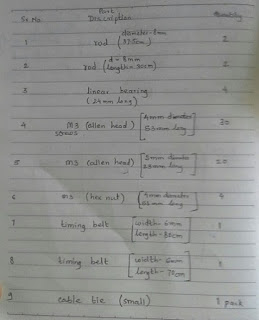 Sr No. Part Description Quantity
1 rod (diameter-8mm 37.5cm) 2
2 rod (d=8mm length-30cm) 2
3 linear bearing (24mm long) 4
4 m3 (allen head) screws [4mm diameter 55mm long] 20
5 m3 (allen head) [3mm diameter long] 20
6 m3 (hex nut) [4mm diameter long] 4
7 timing belt [width-6mm length-85cm] 1
8 timing belt [width-6mm length-70cm] 1
9 cable tie (small) 1 pack